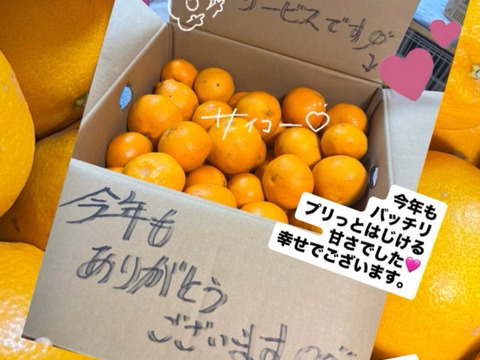 サービスです
サイコー♡
今年も
バッチリ
プリっとはじける
甘さでした🩷
幸せでございます。
今年も
ありがとう
ございます